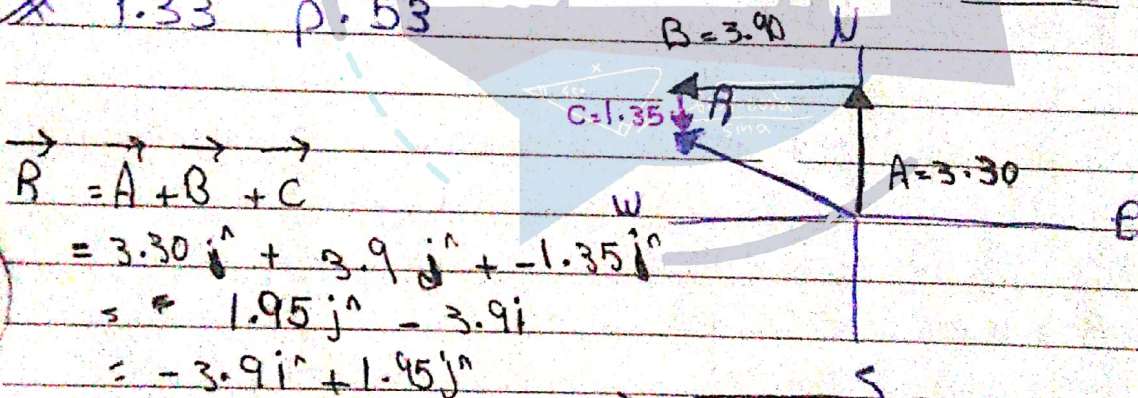 1.33 p. 53
B = 3.90 N
C=1.35 R
A=3.30
W E
R = A + B + C
= 3.30 j^ + 3.9 j^ + -1.35 j^
= = 1.95 j^ - 3.9i
= -3.9 i^ + 1.95 j^
S
x
sina